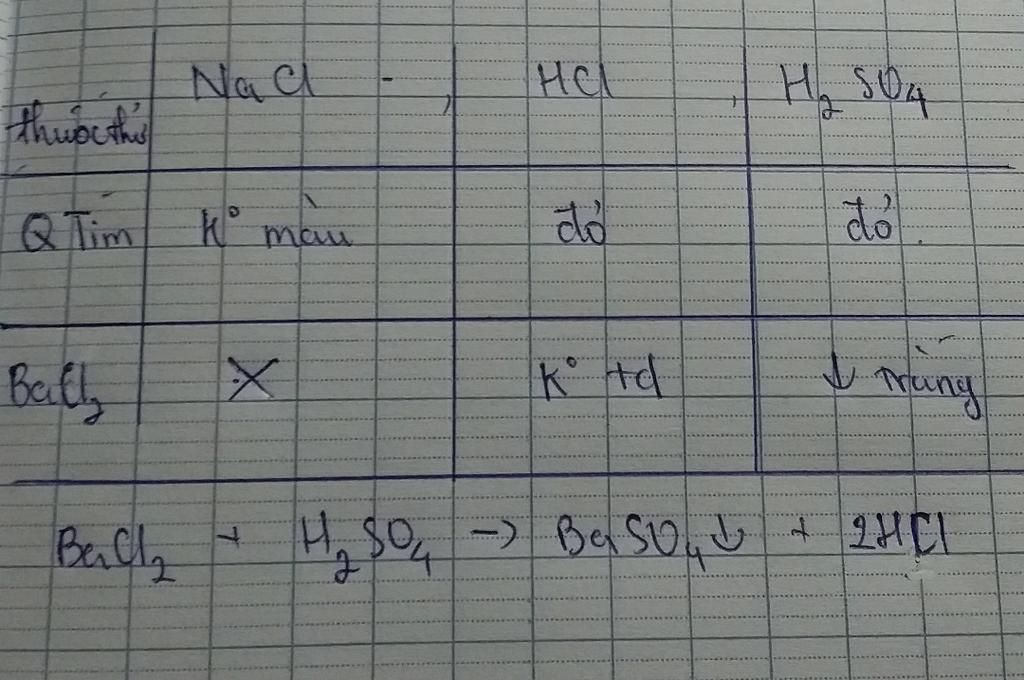 thuốc thử NaCl - , HCl , H₂SO₄
Q Tím K° màu đỏ đỏ.
BaCl₂ X K° +d ↓ trắng
BaCl₂ + H₂SO₄ -> BaSO₄↓ + 2HCl